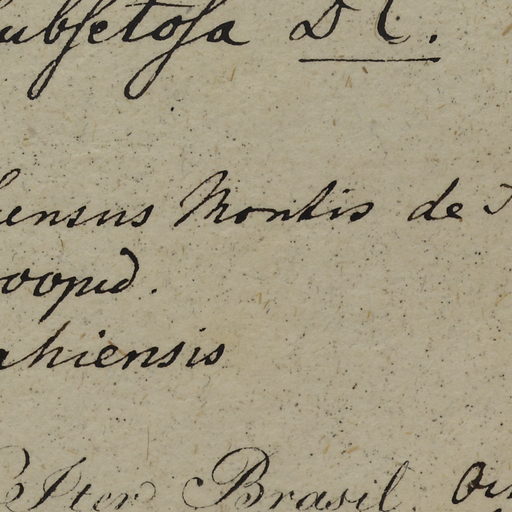 ubsetosa D C.
ensus Montis de
oopid.
ahiensis
Iter Brasil.